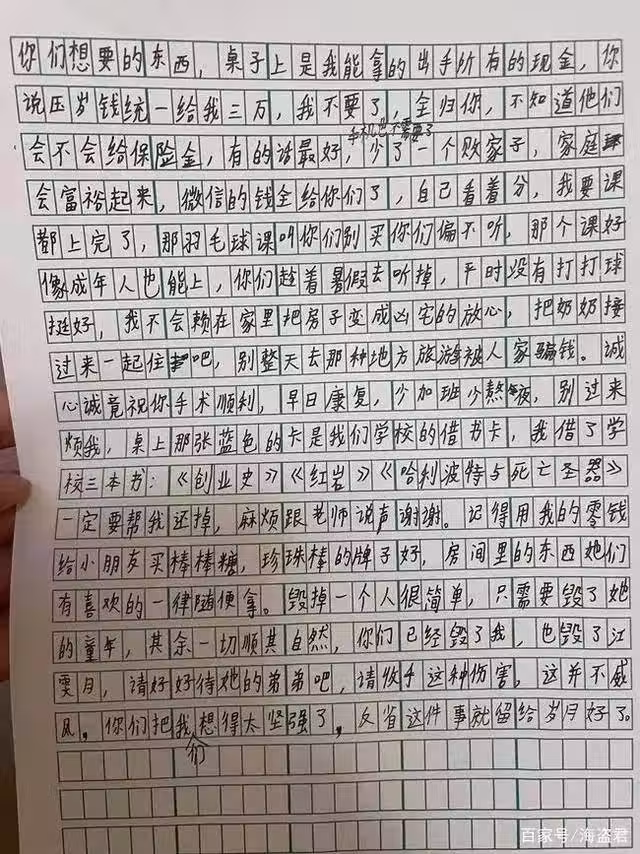 你们想要的东西，桌子上是我能拿的出手所有的现金，你
说压岁钱统一给我三万，我不要了，全归你，不知道他们
手机也不需要了
会不会给保险金，有的话最好，少了一个败家子，家庭
会富裕起来，微信的钱全给你们了，自己看着分，我要课
都上完了，那羽毛球课叫你们别买你们偏不听，那个课好
像成年人也能上，你们趁着暑假去听掉，平时没有打打球
挺好，我不会赖在家里把房子变成凶宅的放心，把奶奶接
过来一起住吧，别整天去那种地方旅游被人家骗钱。诚
心诚意祝你手术顺利，早日康复，少加班少熬夜，别过来
烦我，桌上那张蓝色的卡是我们学校的借书卡，我借了学
校三本书：《创业史》《红岩》《哈利波特与死亡圣器》
一定要帮我还掉，麻烦跟老师说声谢谢。记得用我的零钱
给小朋友买棒棒糖，珍珠棒的牌子好，房间里的东西她们
有喜欢的一律随便拿。毁掉一个人很简单，只需要毁了她
的童年，其余一切顺其自然，你们已经毁了我，也毁了江
雯月，请好好待她的弟弟吧，请收手这种伤害。这并不威
风。你们把我们想得太坚强了，反省这件事就留给岁月好了。
百家号/海盗君